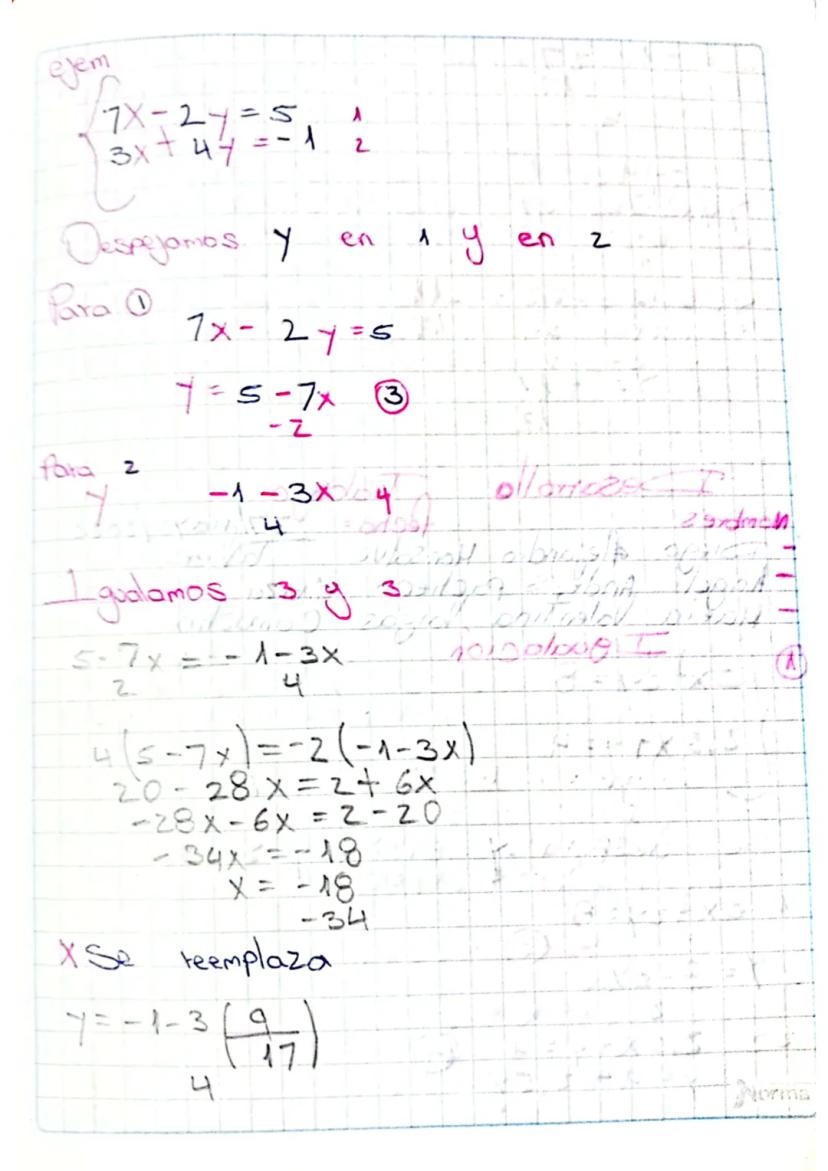 ejem
7x - 2y = 5 1
3x + 4y = -1 2
Despejamos y en 1 y en 2
Para ①
7x - 2y = 5
y = 5 - 7x ③
-2
Para 2
y -1 - 3x 4
4
Igualamos 3 y 3
5 - 7x = -1 - 3x
2 4
4(5 - 7x) = -2(-1 - 3x)
20 - 28x = 2 + 6x
-28x - 6x = 2 - 20
-34x = -18
x = -18
-34
x Se reemplaza
y = -1 - 3 (9
17)
4
Norma